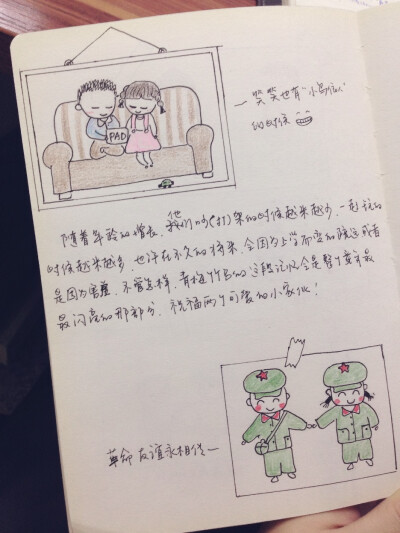 PAD
— 笑笑也有"小鸟依人"
的时候
随着年龄的增长,他我们吵(打)架的时候越来越少,一起玩的
时候越来越多,也许在不久的将来,会因为上学而变的疏远或者
是因为害羞,不管怎样,青梅竹马的这段记忆会是整个童年最
最闪亮的那部分,祝福两个可爱的小家伙!
革命友谊永相传—